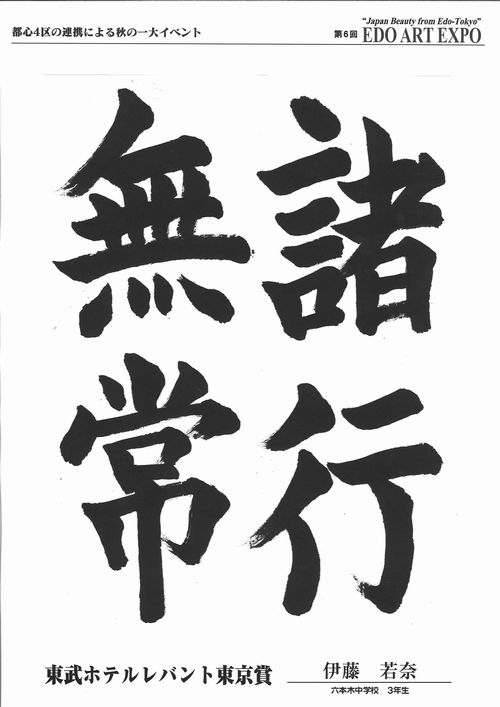 都心4区の連携による秋の一大イベント
"Japan Beauty from Edo-Tokyo"
第6回 EDO ART EXPO
諸行
無常
東武ホテルレバント東京賞
伊藤 若奈
六本木中学校 3年生